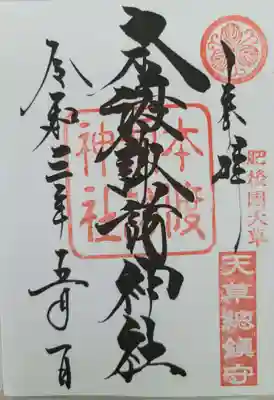 奉拝
肥後國天草
天草總鎮守
本渡諏訪神社
本渡
神社
令和三年五月一日